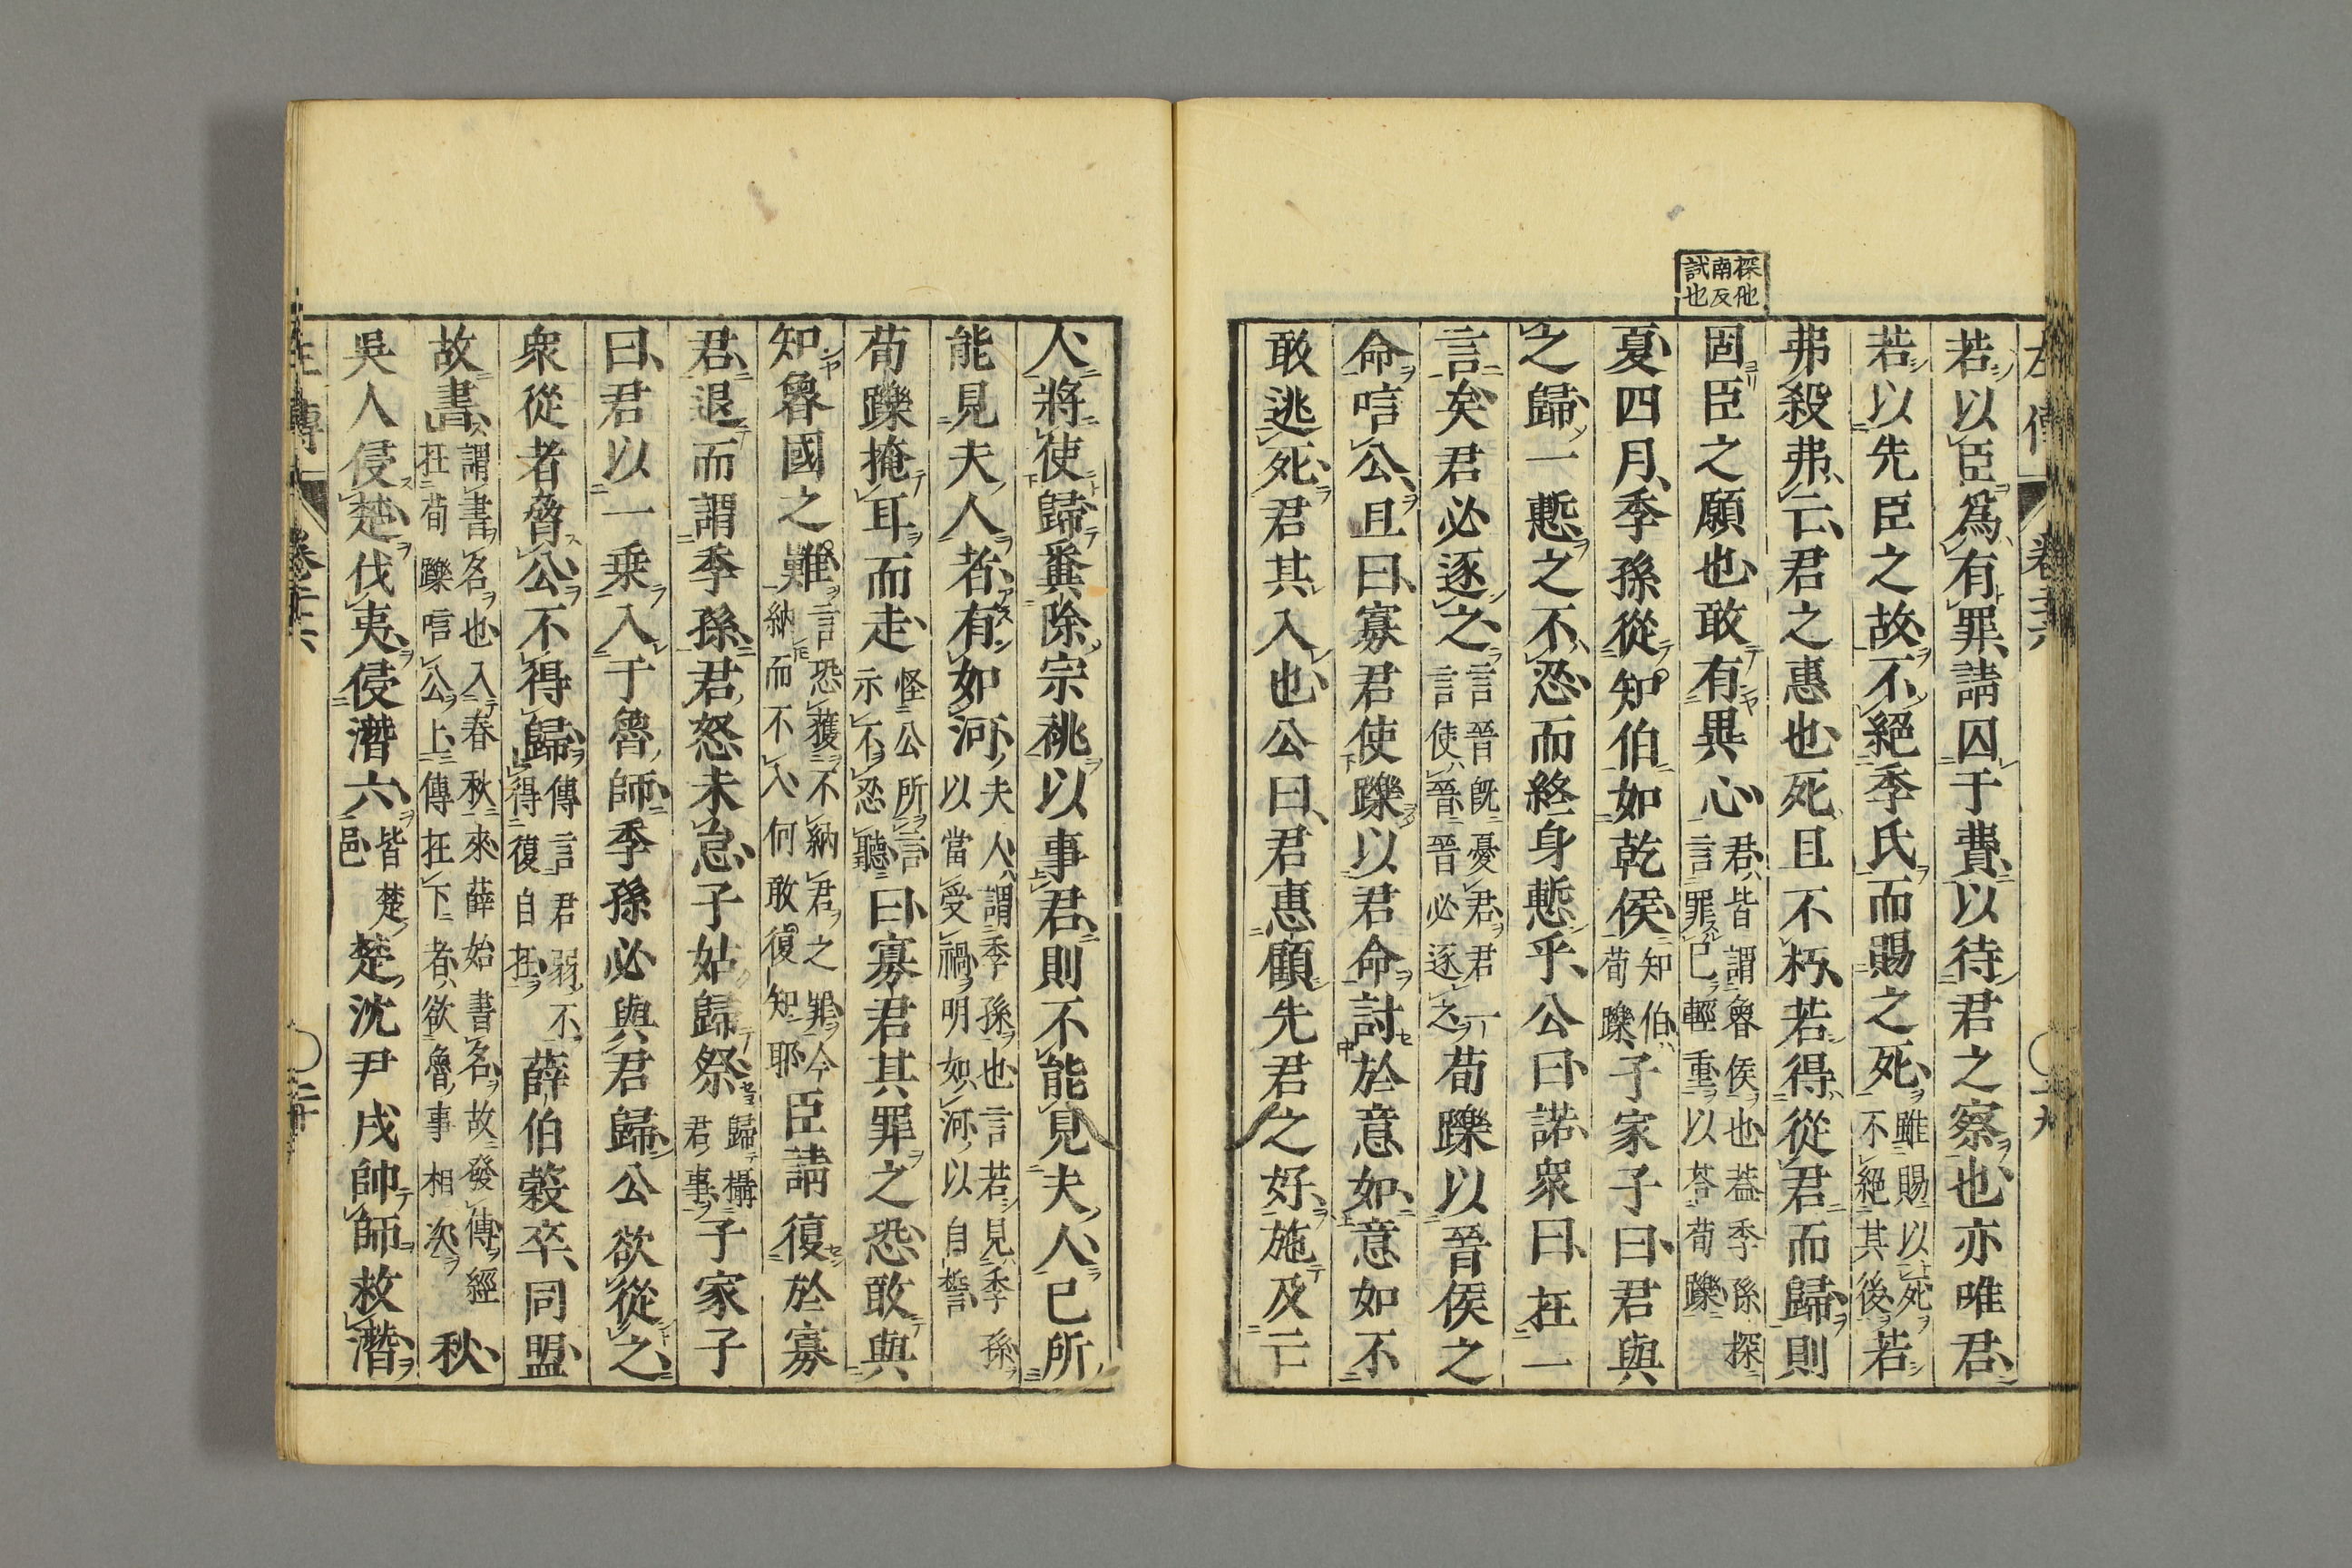 左傳 卷二十六 二十九
探他
南反
試也
若以臣爲有罪請囚于費以待君之察也亦唯君
若以先臣之故不絕季氏而賜之死雖賜以死不絕其後若
弗殺弗亡君之惠也死且不朽若得從君而歸則
固臣之願也敢有異心君皆謂魯侯也蓋季孫探言罪己輕重以荅荀躒
夏四月季孫從知伯如乾侯知伯荀躒子家子曰君與
之歸一慙之不忍而終身慙乎公曰諾衆曰在一
言矣君必逐之言晉旣憂君君一言使晉晉必逐之荀躒以晉侯之
命唁公且曰寡君使躒以君命討於意如意如不
敢逃死君其入也公曰君惠顧先君之好施及亡
人將使歸糞除宗祧以事君則不能見夫人已所
能見夫人者有如河夫人謂季孫也言若見季孫以當受禍明如河以自誓
荀躒掩耳而走怪公所言示不忍聽曰寡君其罪之恐敢與
知魯國之難言恐獲不納君之罪今納而不入何敢復知耶臣請復於寡
君退而謂季孫君怒未怠子姑歸祭歸攝君事子家子
曰君以一乗入于魯師季孫必與君歸公欲從之
衆從者脅公不得歸傳言君弱不得復自在薛伯穀卒同盟
故書謂書名也入春秋來薛始書名故發傳經在荀躒唁公上傳在下者欲魯事相次秋
吳人侵楚伐夷侵潛六皆楚邑楚沈尹戌帥師救潛
左傳 卷二十六 三十